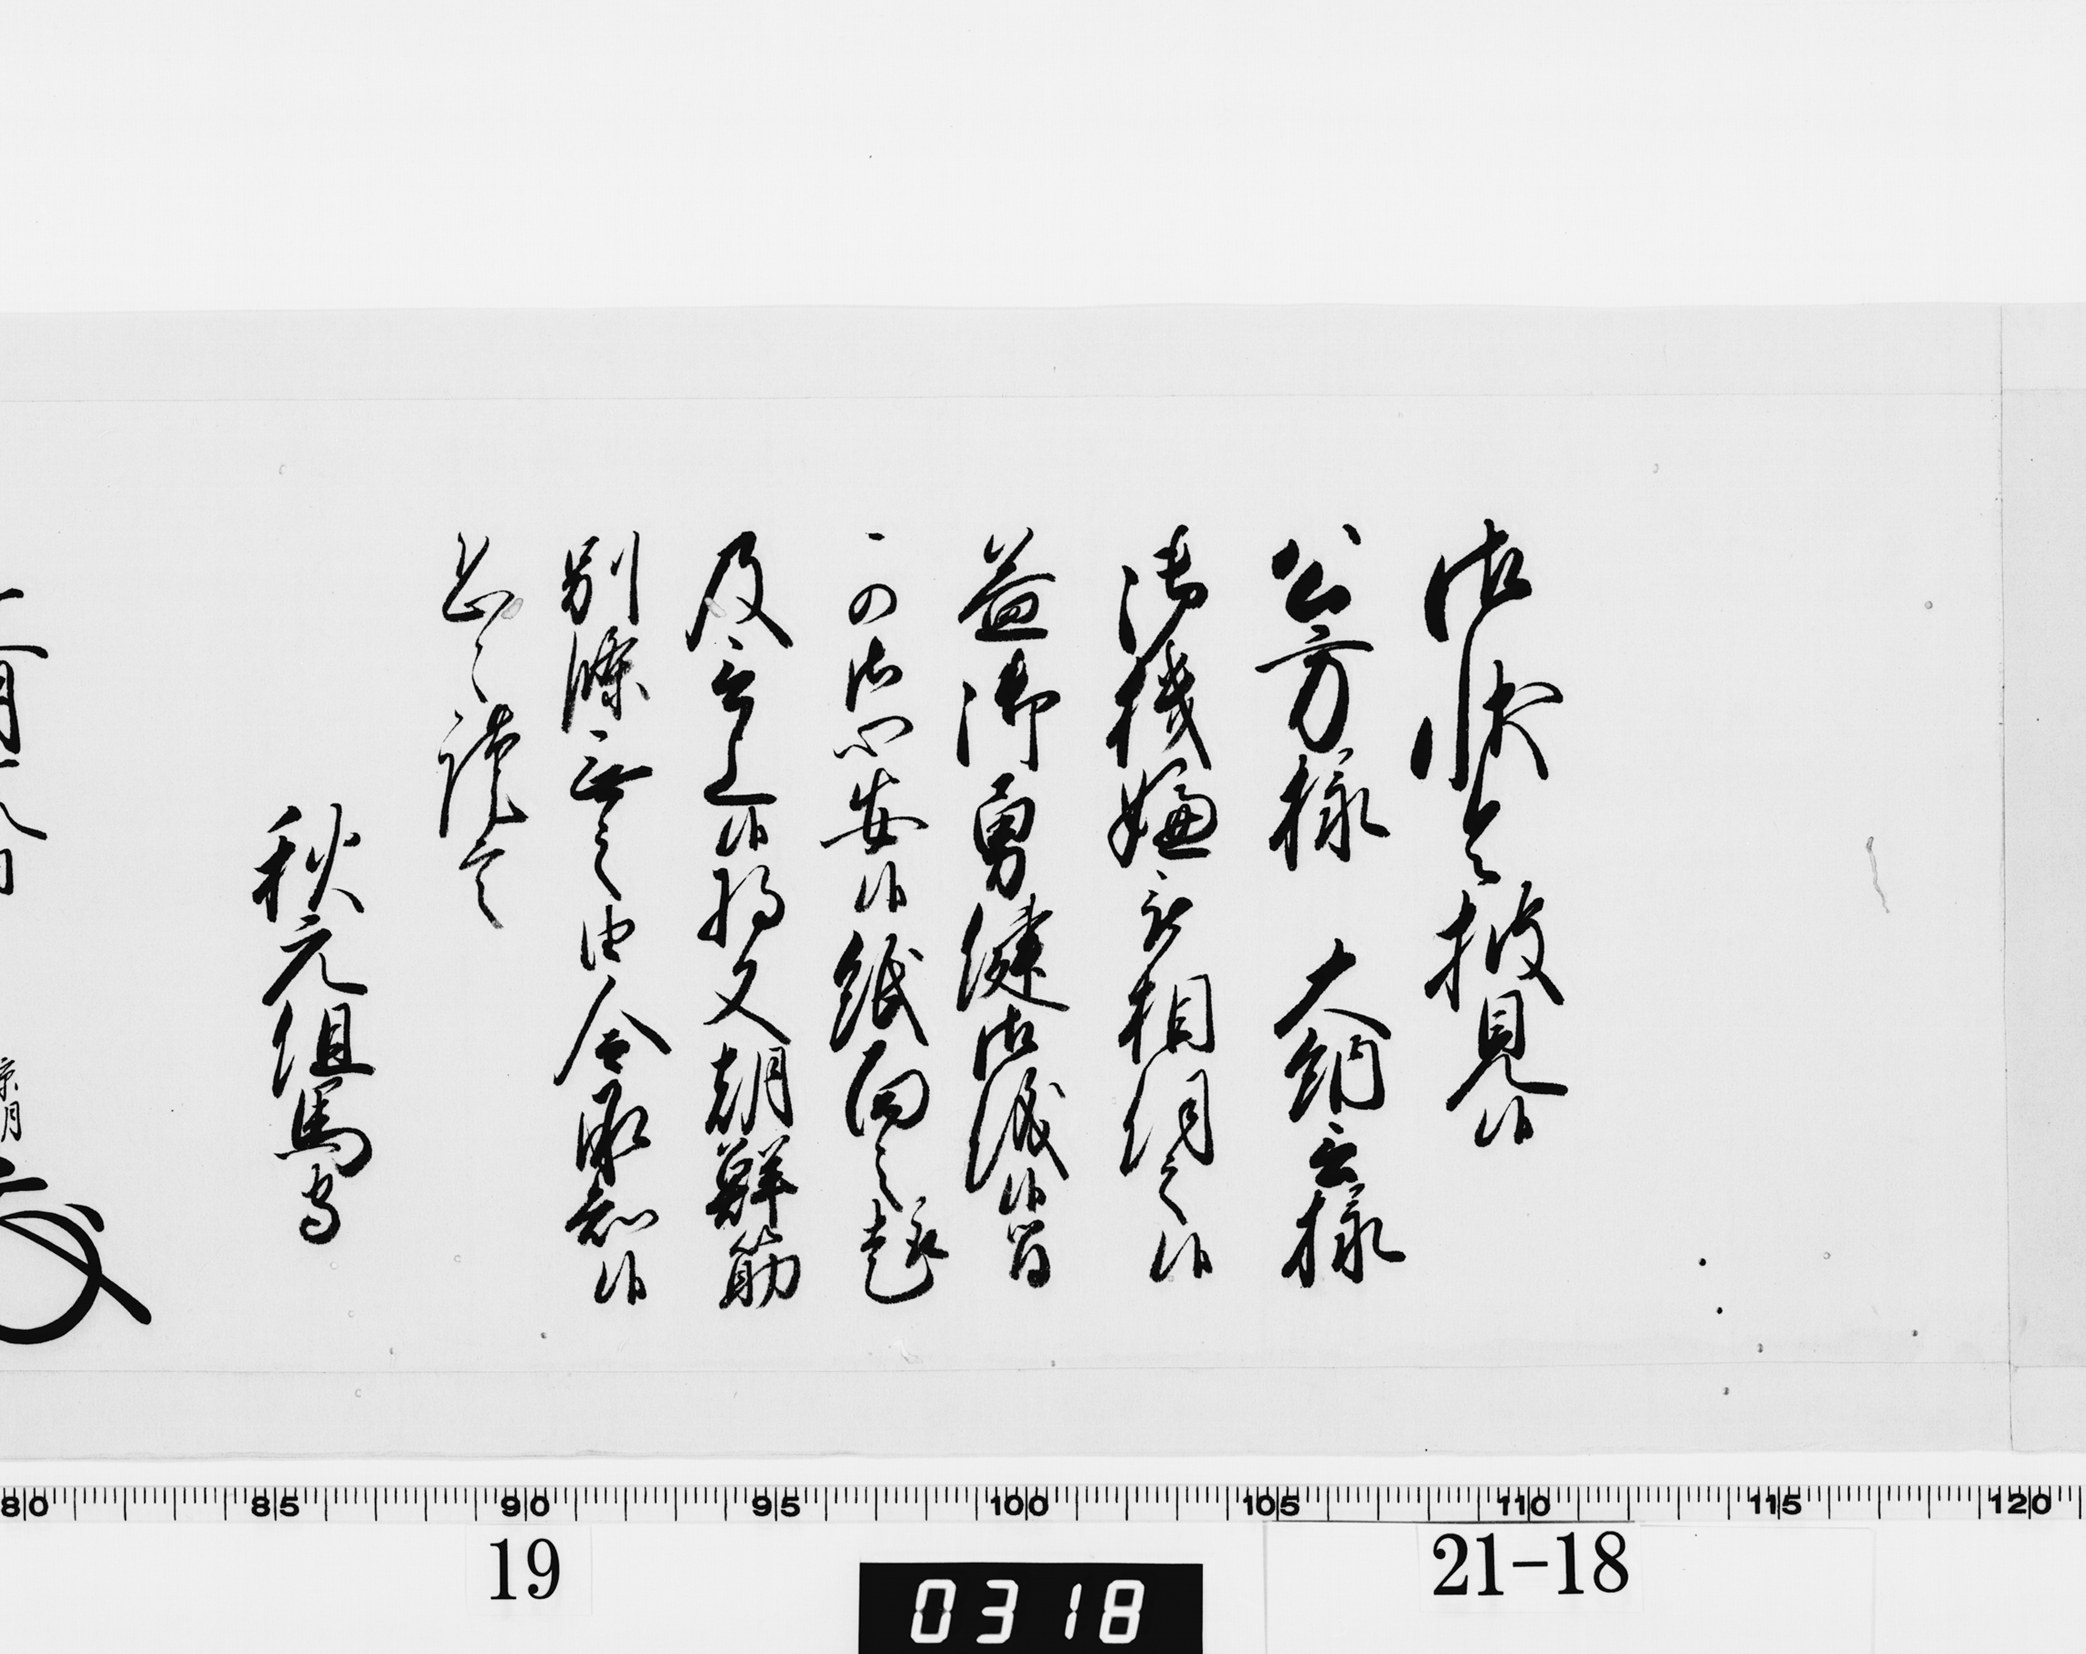 御状令披見候
公方様　大納言様
御機嫌被相伺之候
益御勇健御儀候間
可御心安候紙面之趣
及言上候将又朝鮮筋
別條無之由令承知候
恐々謹言
秋元但馬守
0318
19
21-18
80 85 90 95 100 105 110 115 120